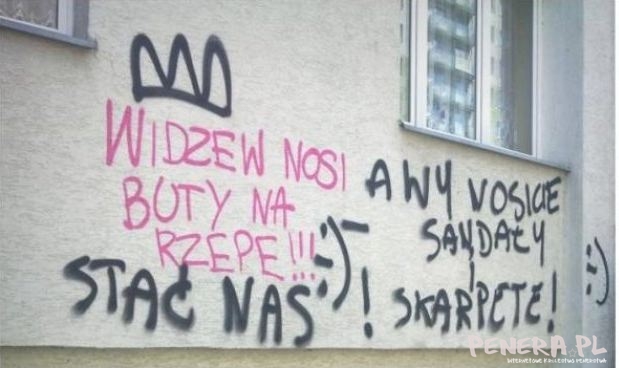 WIDZEW NOSI
BUTY NA
RZEPE!!!
STAĆ NAS :) !
A WY NOSICIE
SANDAŁY
I
SKARPETE! :)
PENERA.PL
INTERNETOWE KOLEKTWO PENERSTWA